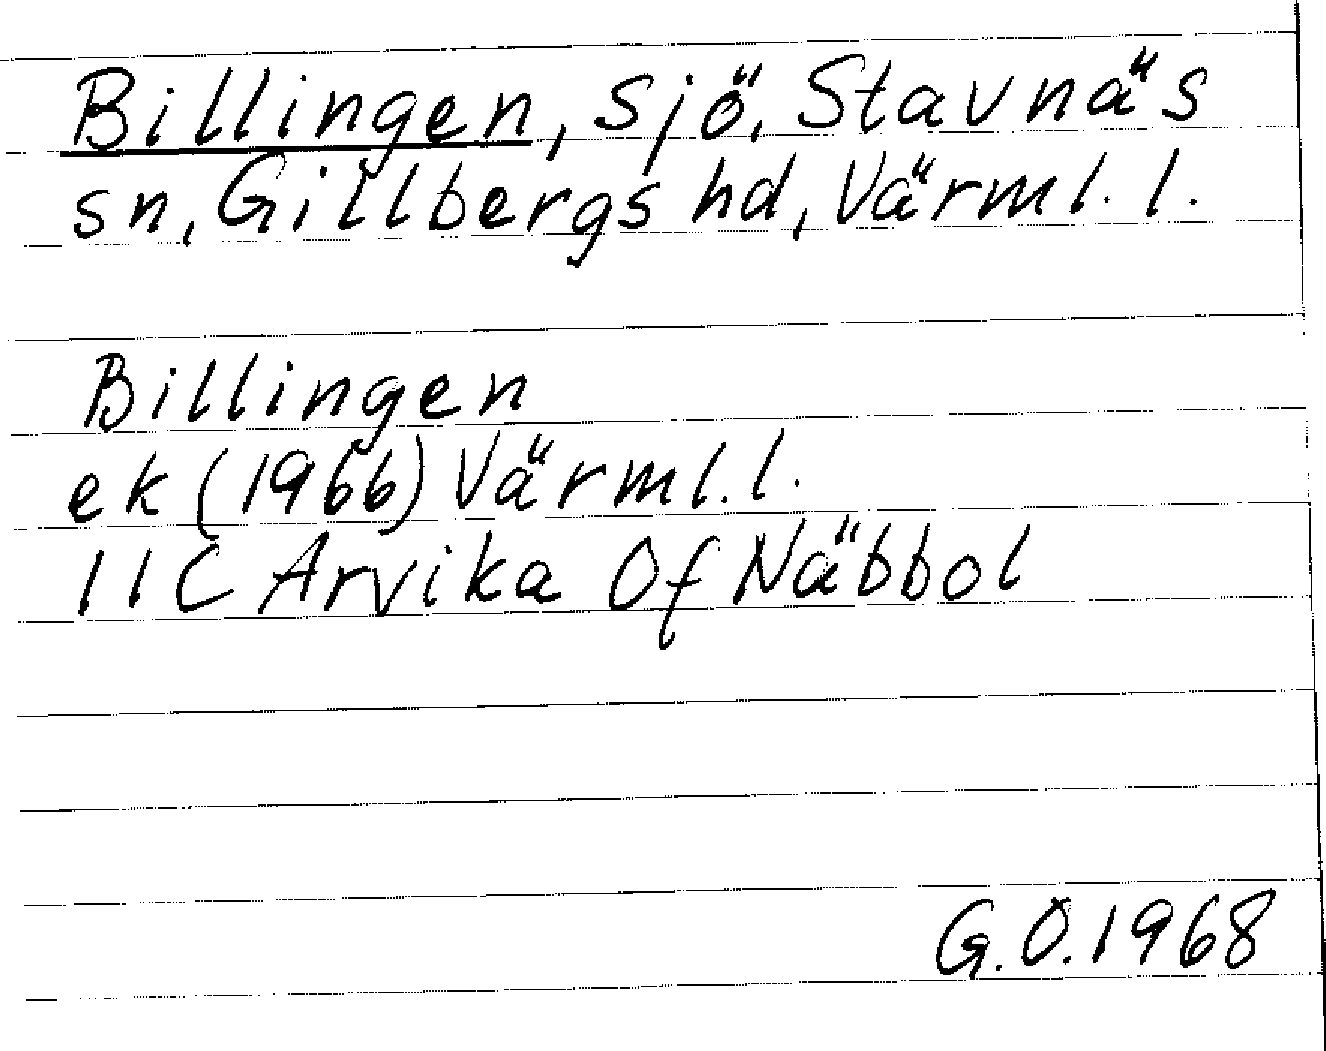 Billingen, sjö, Stavnäs
sn, Gillbergs hd, Värml. l.
Billingen
ek (1966) Värml. l.
11C Arvika 0f Näbbol
G.O.1968